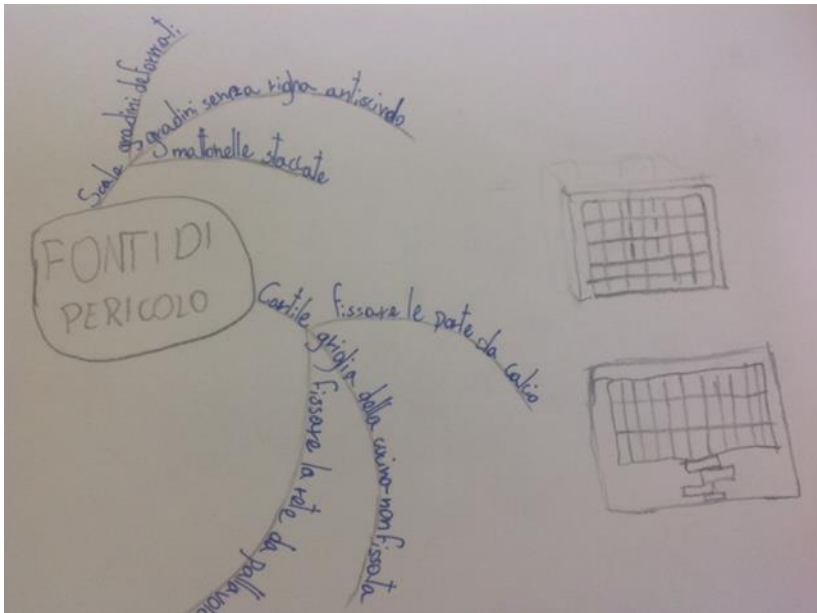 Scale
gradini deformati
gradini senza righa antiscivolo
mattonelle staccate
FONTI DI
PERICOLO
Cortile
fissare le porte da calcio
griglia della cucina non fissata
fissare la rete da pallavolo